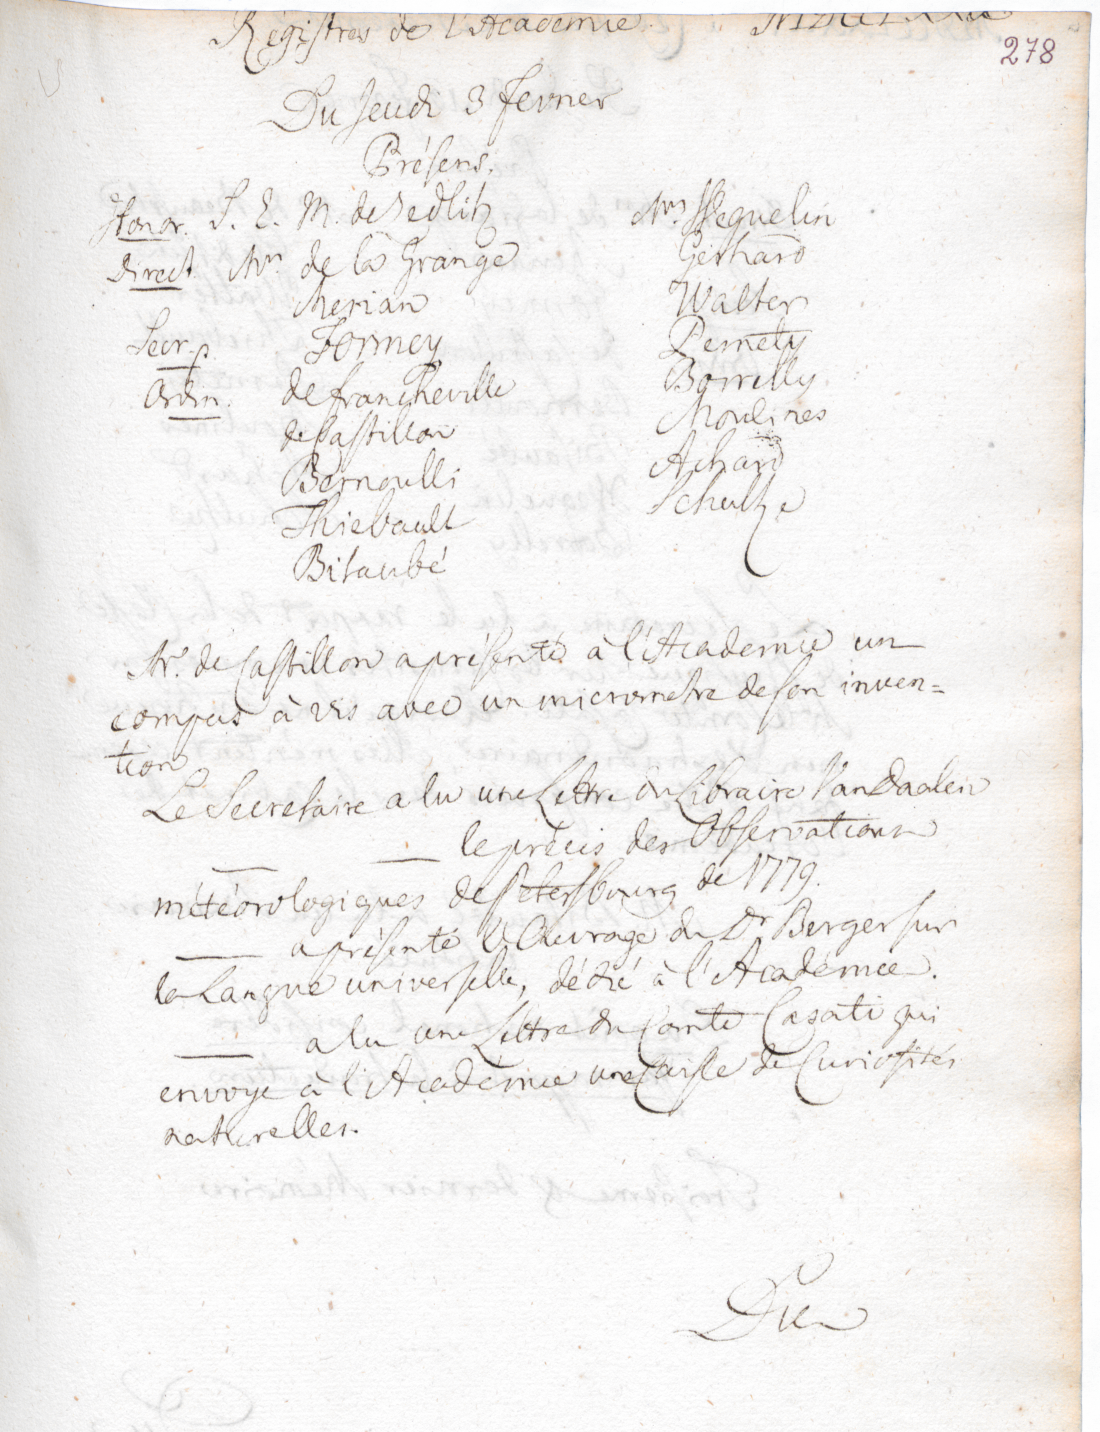 Régistres de l'Academie.
278
Du Jeudi 3 fevrier
Présens.
Honor. S. E. M. de Zedlitz
Direct Mrs de la Grange
Merian
Secr. p. Formey
Ordin. de francheville
de Castillon
Bernoulli
Thiebault
Bitaubé
Mrs Weguelin
Gerhard
Walter
Pernety
Borrelly.
Moulines
Achard
Schultze
Mr. de Castillon a présenté à l'Academie un
compas à vis avec un micrometre de son inven=
tion
Le Secretaire a lu une Lettre du Libraire Van Daalen
— — le précis des Observations
météorologiques de Petersbourg de 1779.
— a présenté l'Ouvrage du Dr Berger sur
la Langue universelle, dédié à l'Académie.
— a lu une Lettre du Comte Casati qui
envoye à l'Académie une Caisse de Curiosités
naturelles.
Du